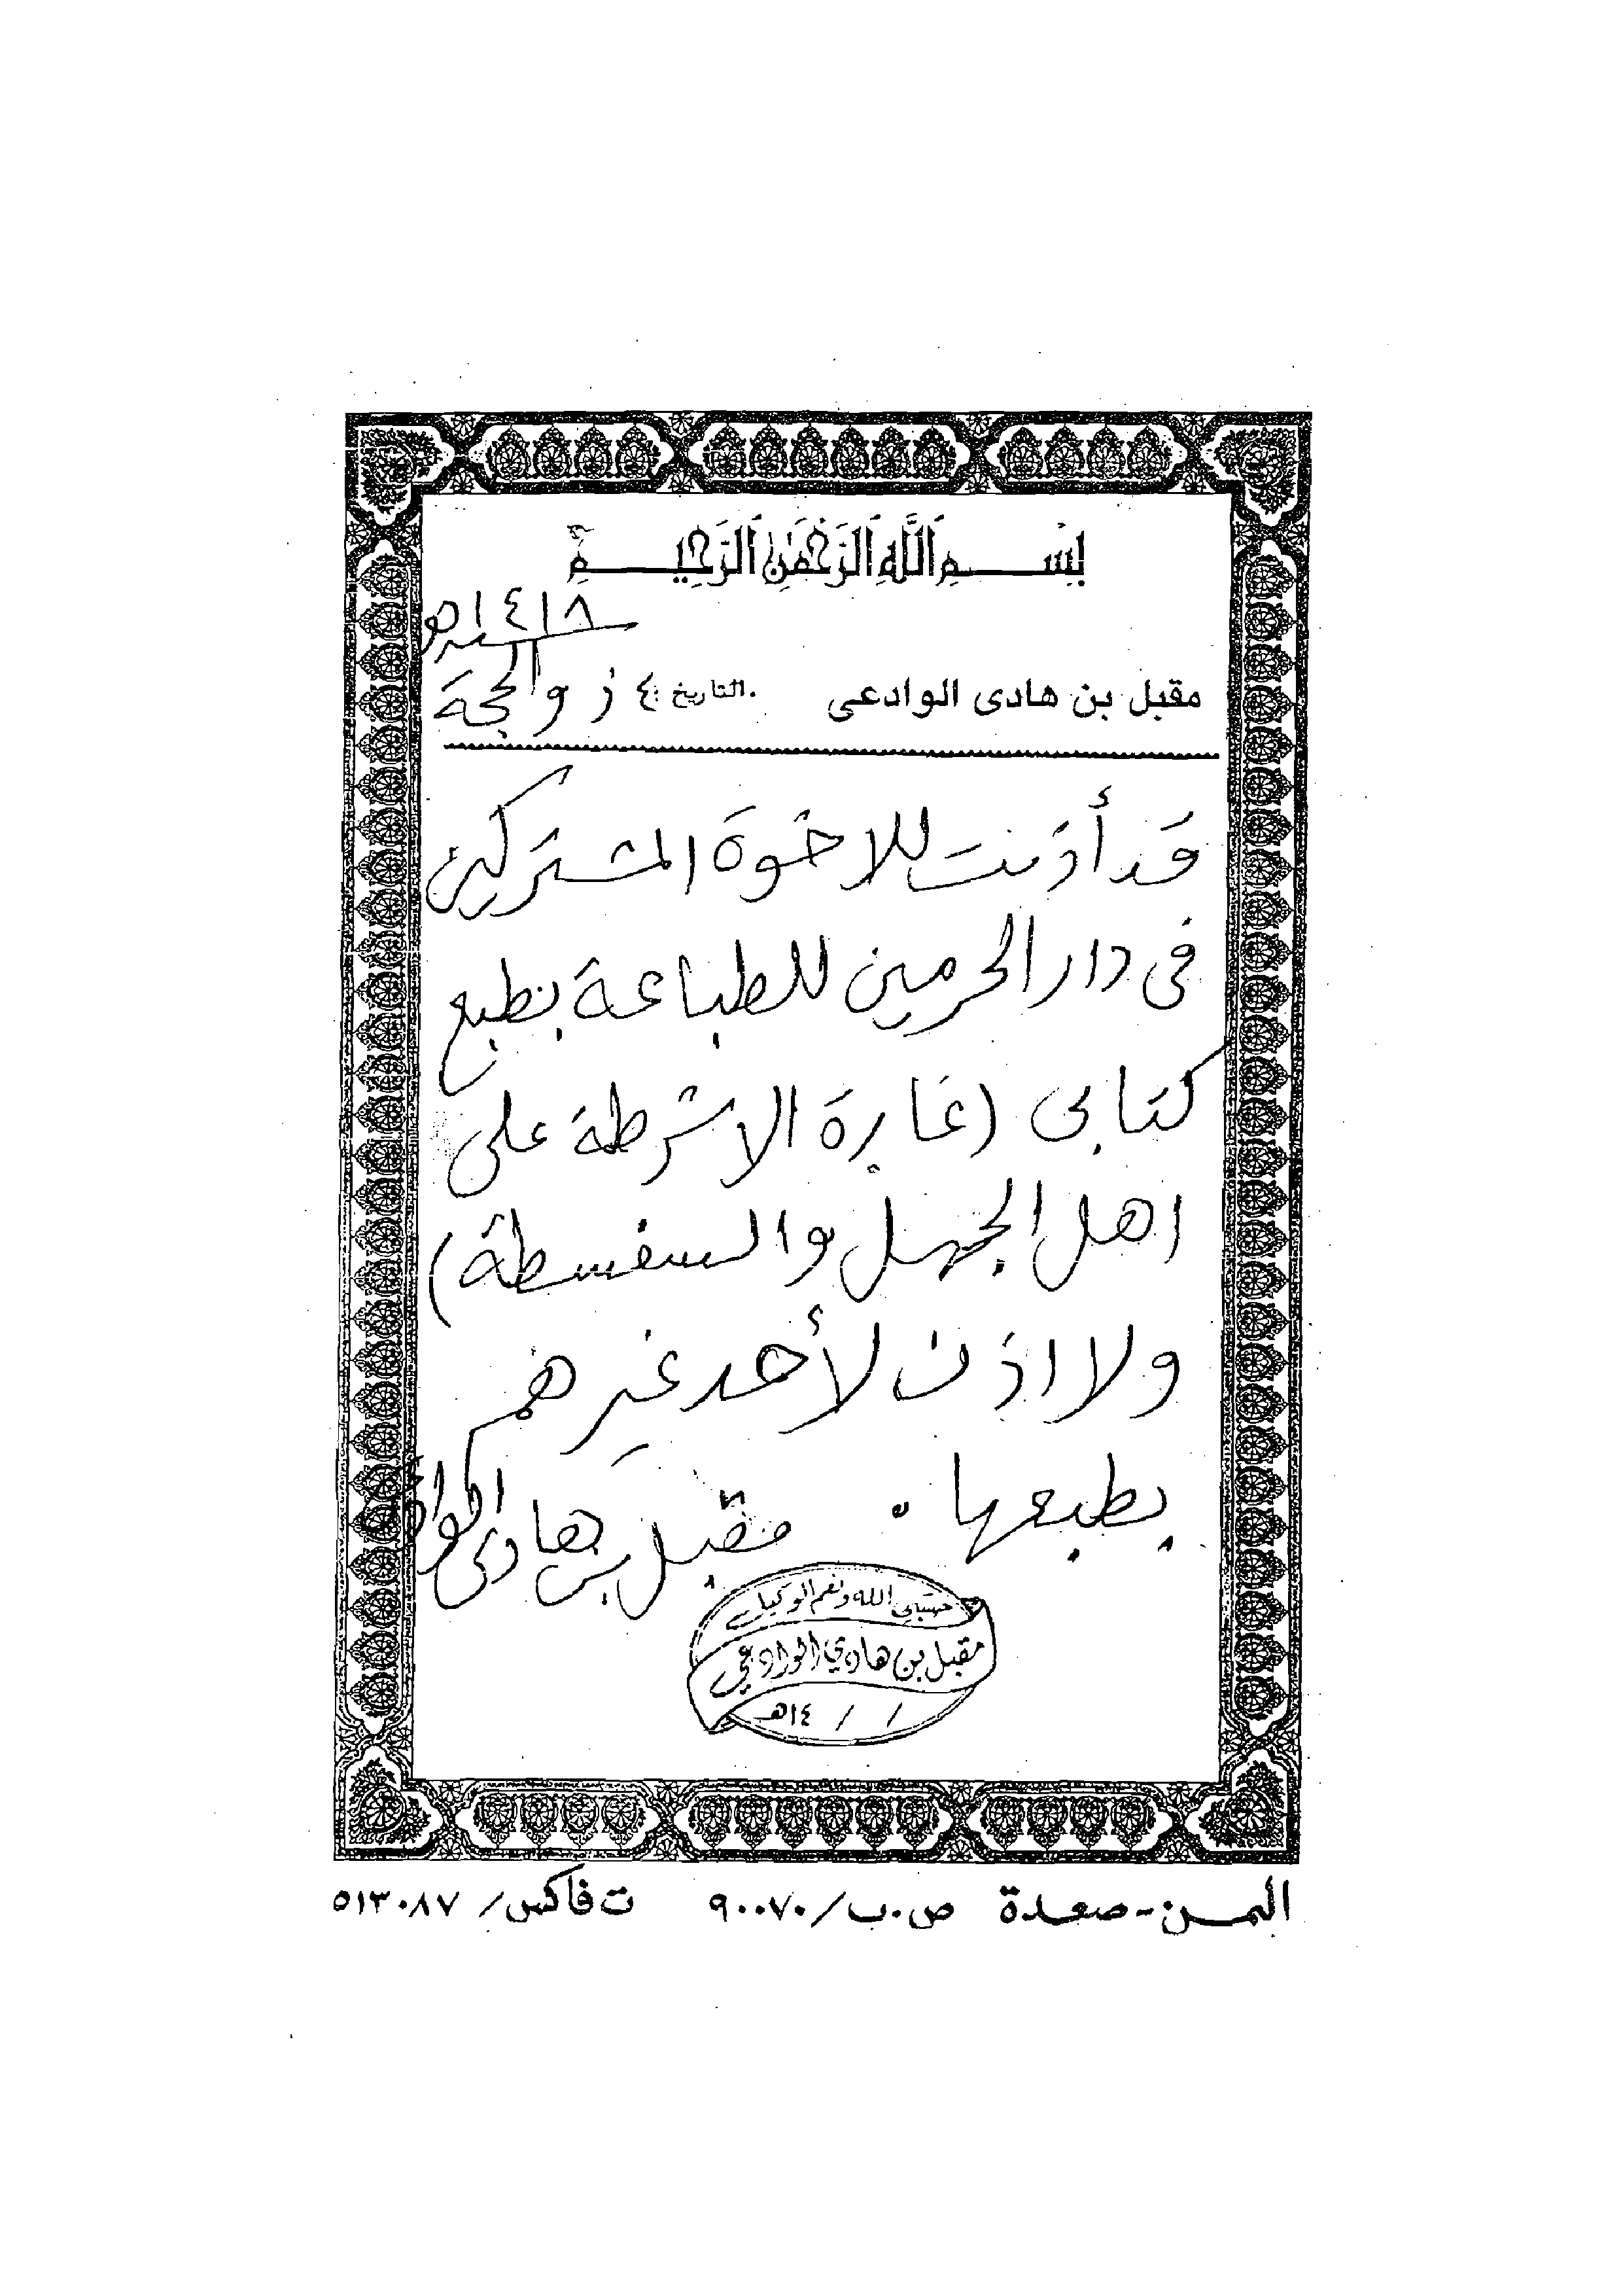 بِسْمِ اللَّهِ الرَّحْمَٰنِ الرَّحِيمِ
سنة ١٤١٨هـ
مقبل بن هادى الوادعى التاريخ: ٤ ذو الحجة
قد أذنت للاخوة المشتركين
فى دار الحرمين للطباعة بطبع
كتابى (غارة الاشرطة على
اهل الجهل والسفسطة)
ولا اذن لأحد غيرهم
بطبعها . مقبل بن هادى الوادعى
حسبي الله ونعم الوكيل
مقبل بن هادي الوادعي
/ / ١٤هـ
اليمن - صعدة ص.ب/ ٩٠٠٧٠ ت فاكس/ ٥١٣٠٨٧